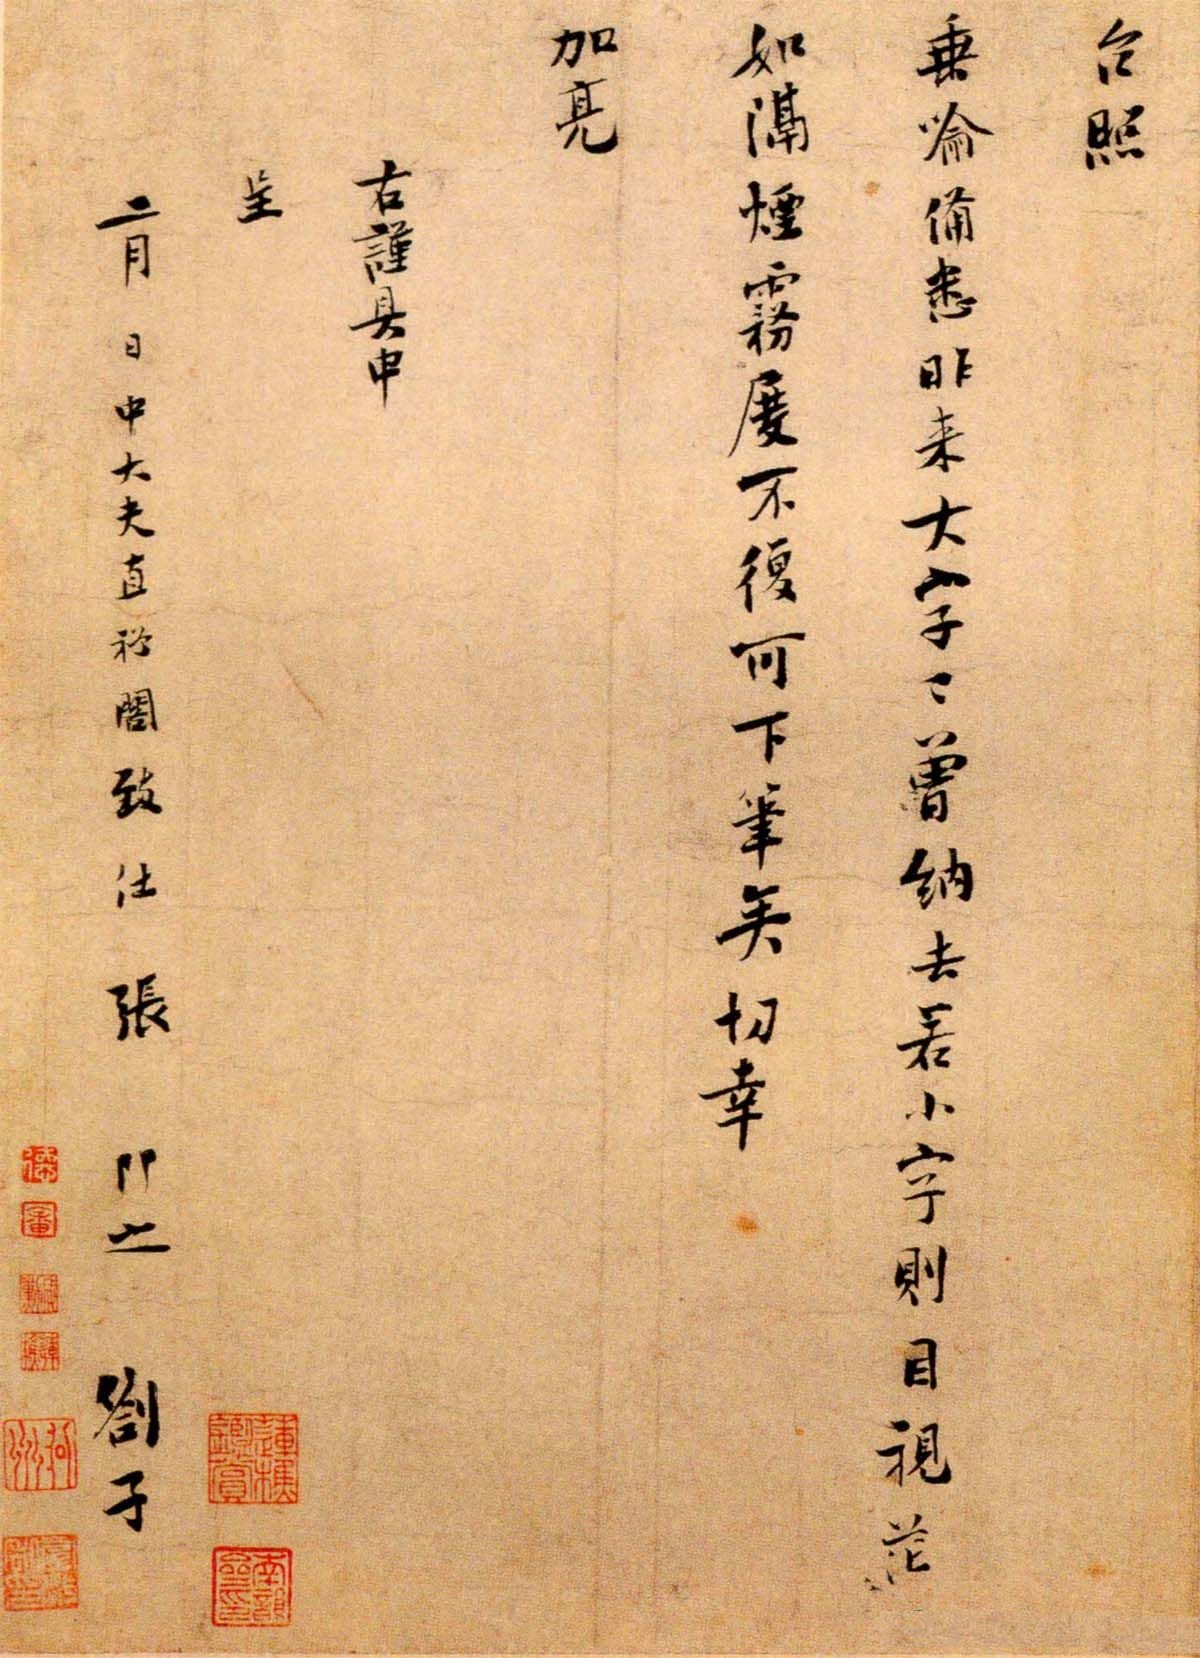 台照
垂喻備悉昨来大字々曾納去若小字則目視茫
如隔煙霧屡不復可下筆矣切幸
加亮
右謹具申
呈
二月 日中大夫直秘閣致仕張 即之 劄子